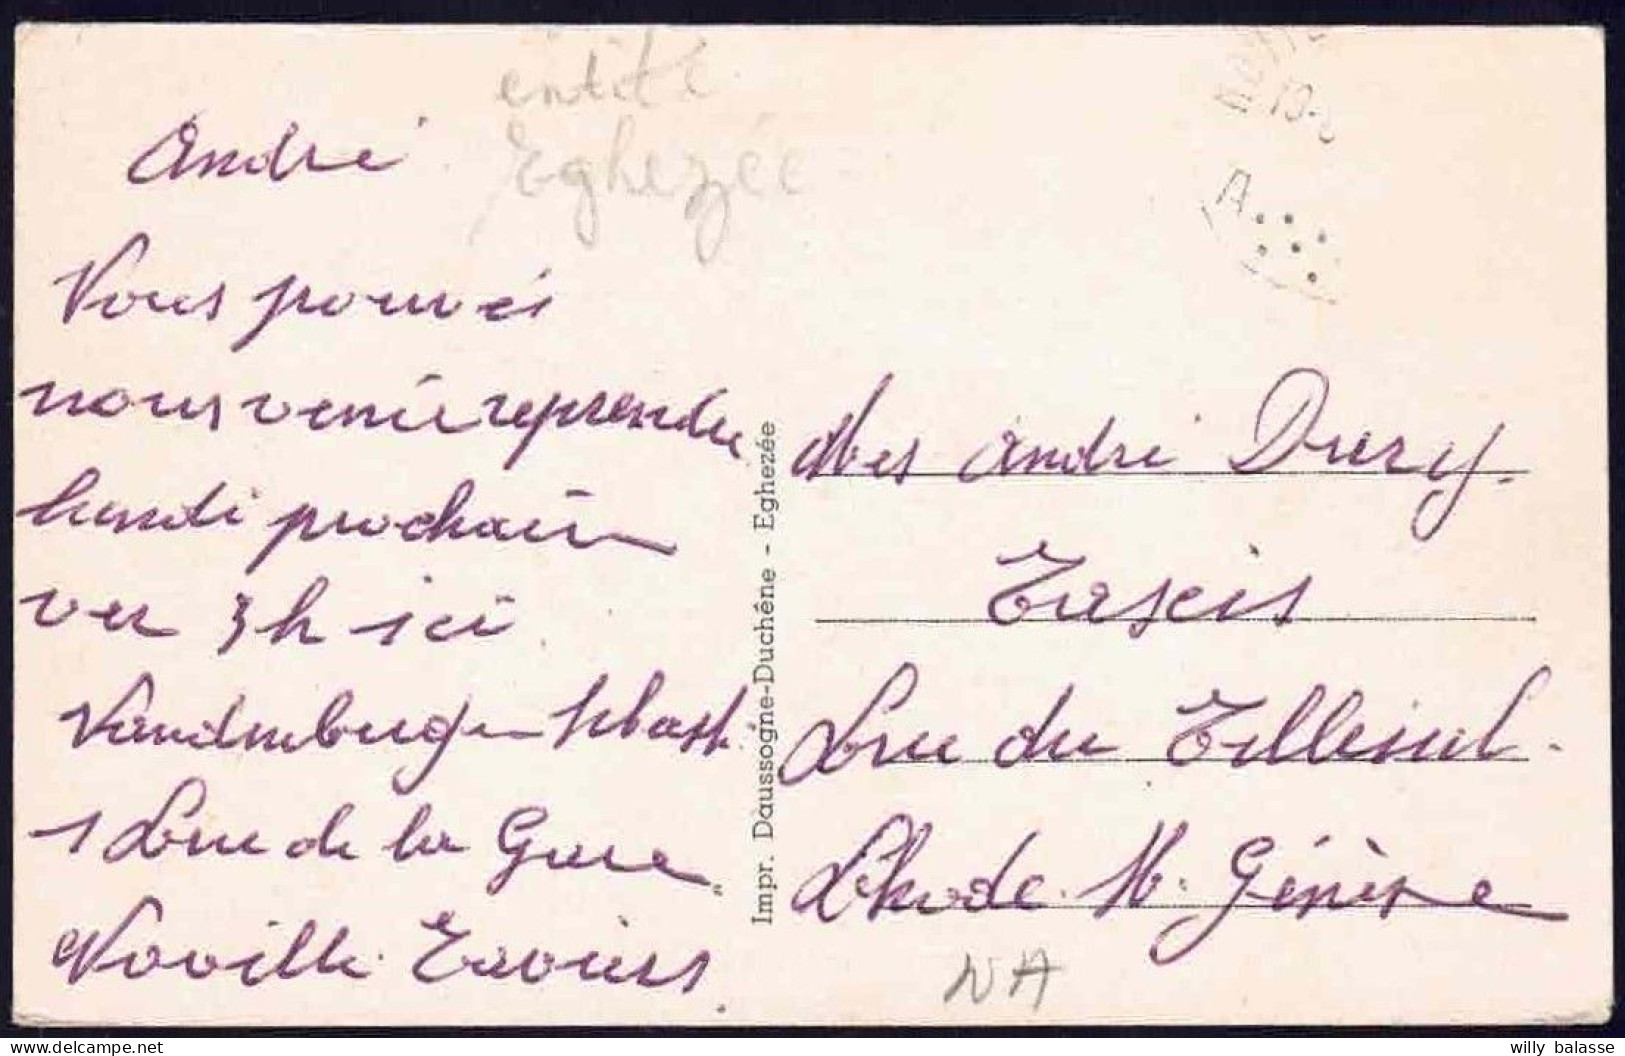 entité
Eghezée
André
Vous pouvéi
nous venir reprendre
lundi prochain
ver 3h ici
Vandenbergh
1 Rue de la Gare
Noville Taviers
Impr. Daussogne-Duchêne - Eghezée
A
Mes André Dury
Taxis
Rue du Tilleul
Rhode. St. Génèse
NA
willy balasse